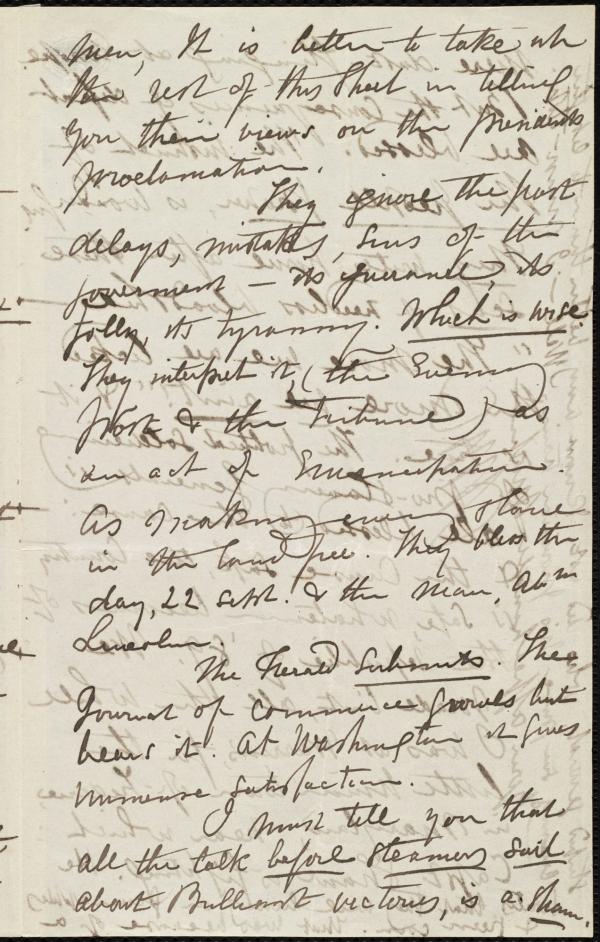 men, It is better to take up
the rest of this Sheet in telling
you their views on the Presidents
proclamation.
They ignore the past
delays, mistakes, sins of the
goverment — its ignorance, its
folly, its tyranny. Which is wise.
They interpret it, (the Evening
Post & the Tribune) as
an act of Emancipation.
As making every slave
in the land free. They bless the
day, 22 sept. & the man, Abm
Lincoln.
The Herald Submits. The
Journal of commerce growls but
bears it. At Washington it gives
immense satisfaction.
I must tell you that
all the talk before steamers sail
about Brilliant victories, is a sham.